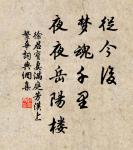 從今後
夢魂千里
夜夜岳陽樓
徐君寶妻滿庭芳漢上
繁華詞典佃集